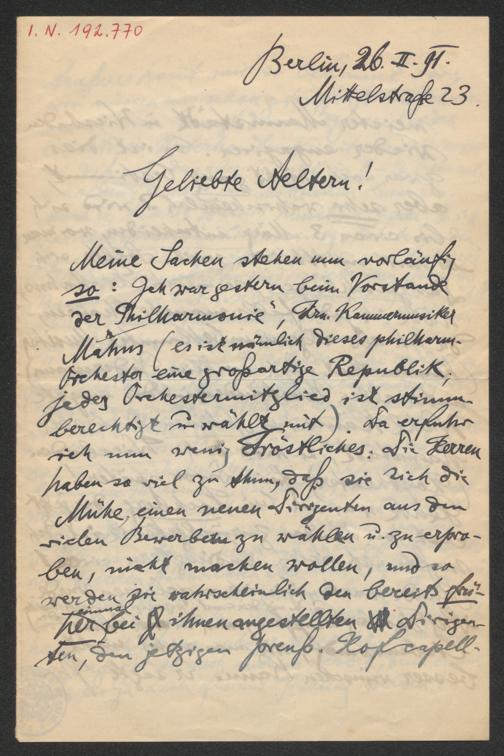 I. N. 192.770
Berlin, 26. II. 91.
Mittelstraße 23.
Geliebte Aeltern!
Meine Sachen stehen nun vorläufig
so: Ich war gestern beim Vorstande
der „Philharmonie", Hrn. Kammermusiker
Mahns (es ist nämlich dieses philharm.
Orchester eine großartige Republik,
jedes Orchestermitglied ist stimm-
berechtigt u. wählt mit). Da erfuhr
ich nun wenig Tröstliches: Die Herren
haben so viel zu thun, daß sie sich die
Mühe, einen neuen Dirigenten aus den
vielen Bewerbern zu wählen u. zu erpro-
ben, nicht machen wollen, und so
werden sie wahrscheinlich den bereits frü-
her einmal bei ihnen angestellten Dirigen-
ten, den jetzigen preuß. Hofcapell-